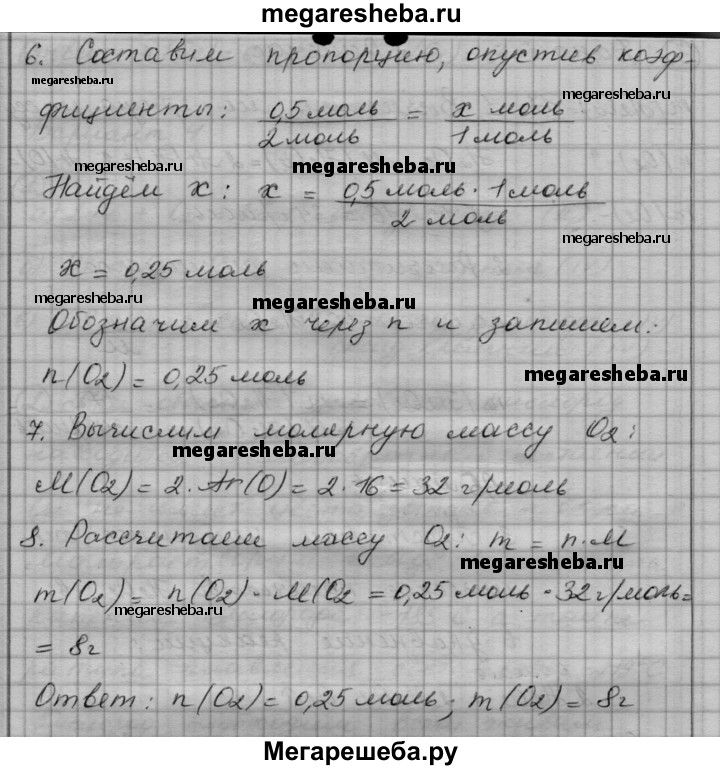 megaresheba.ru
6. Составим пропорцию, опустив коэф-
megaresheba.ru
megaresheba.ru
фициенты: 0,5 моль / 2 моль = x моль / 1 моль
megaresheba.ru
megaresheba.ru
megaresheba.ru
Найдём x: x = 0,5 моль · 1 моль / 2 моль
megaresheba.ru
x = 0,25 моль
megaresheba.ru
megaresheba.ru
Обозначим x через n и запишем:
n(O2) = 0,25 моль
megaresheba.ru
7. Вычислим молярную массу O2:
megaresheba.ru
M(O2) = 2 · Ar(O) = 2 · 16 = 32 г/моль
8. Рассчитаем массу O2: m = n · M
megaresheba.ru
m(O2) = n(O2) · M(O2 = 0,25 моль · 32 г/моль =
megaresheba.ru
= 8г
Ответ: n(O2) = 0,25 моль; m(O2) = 8г
Мегарешеба.ру